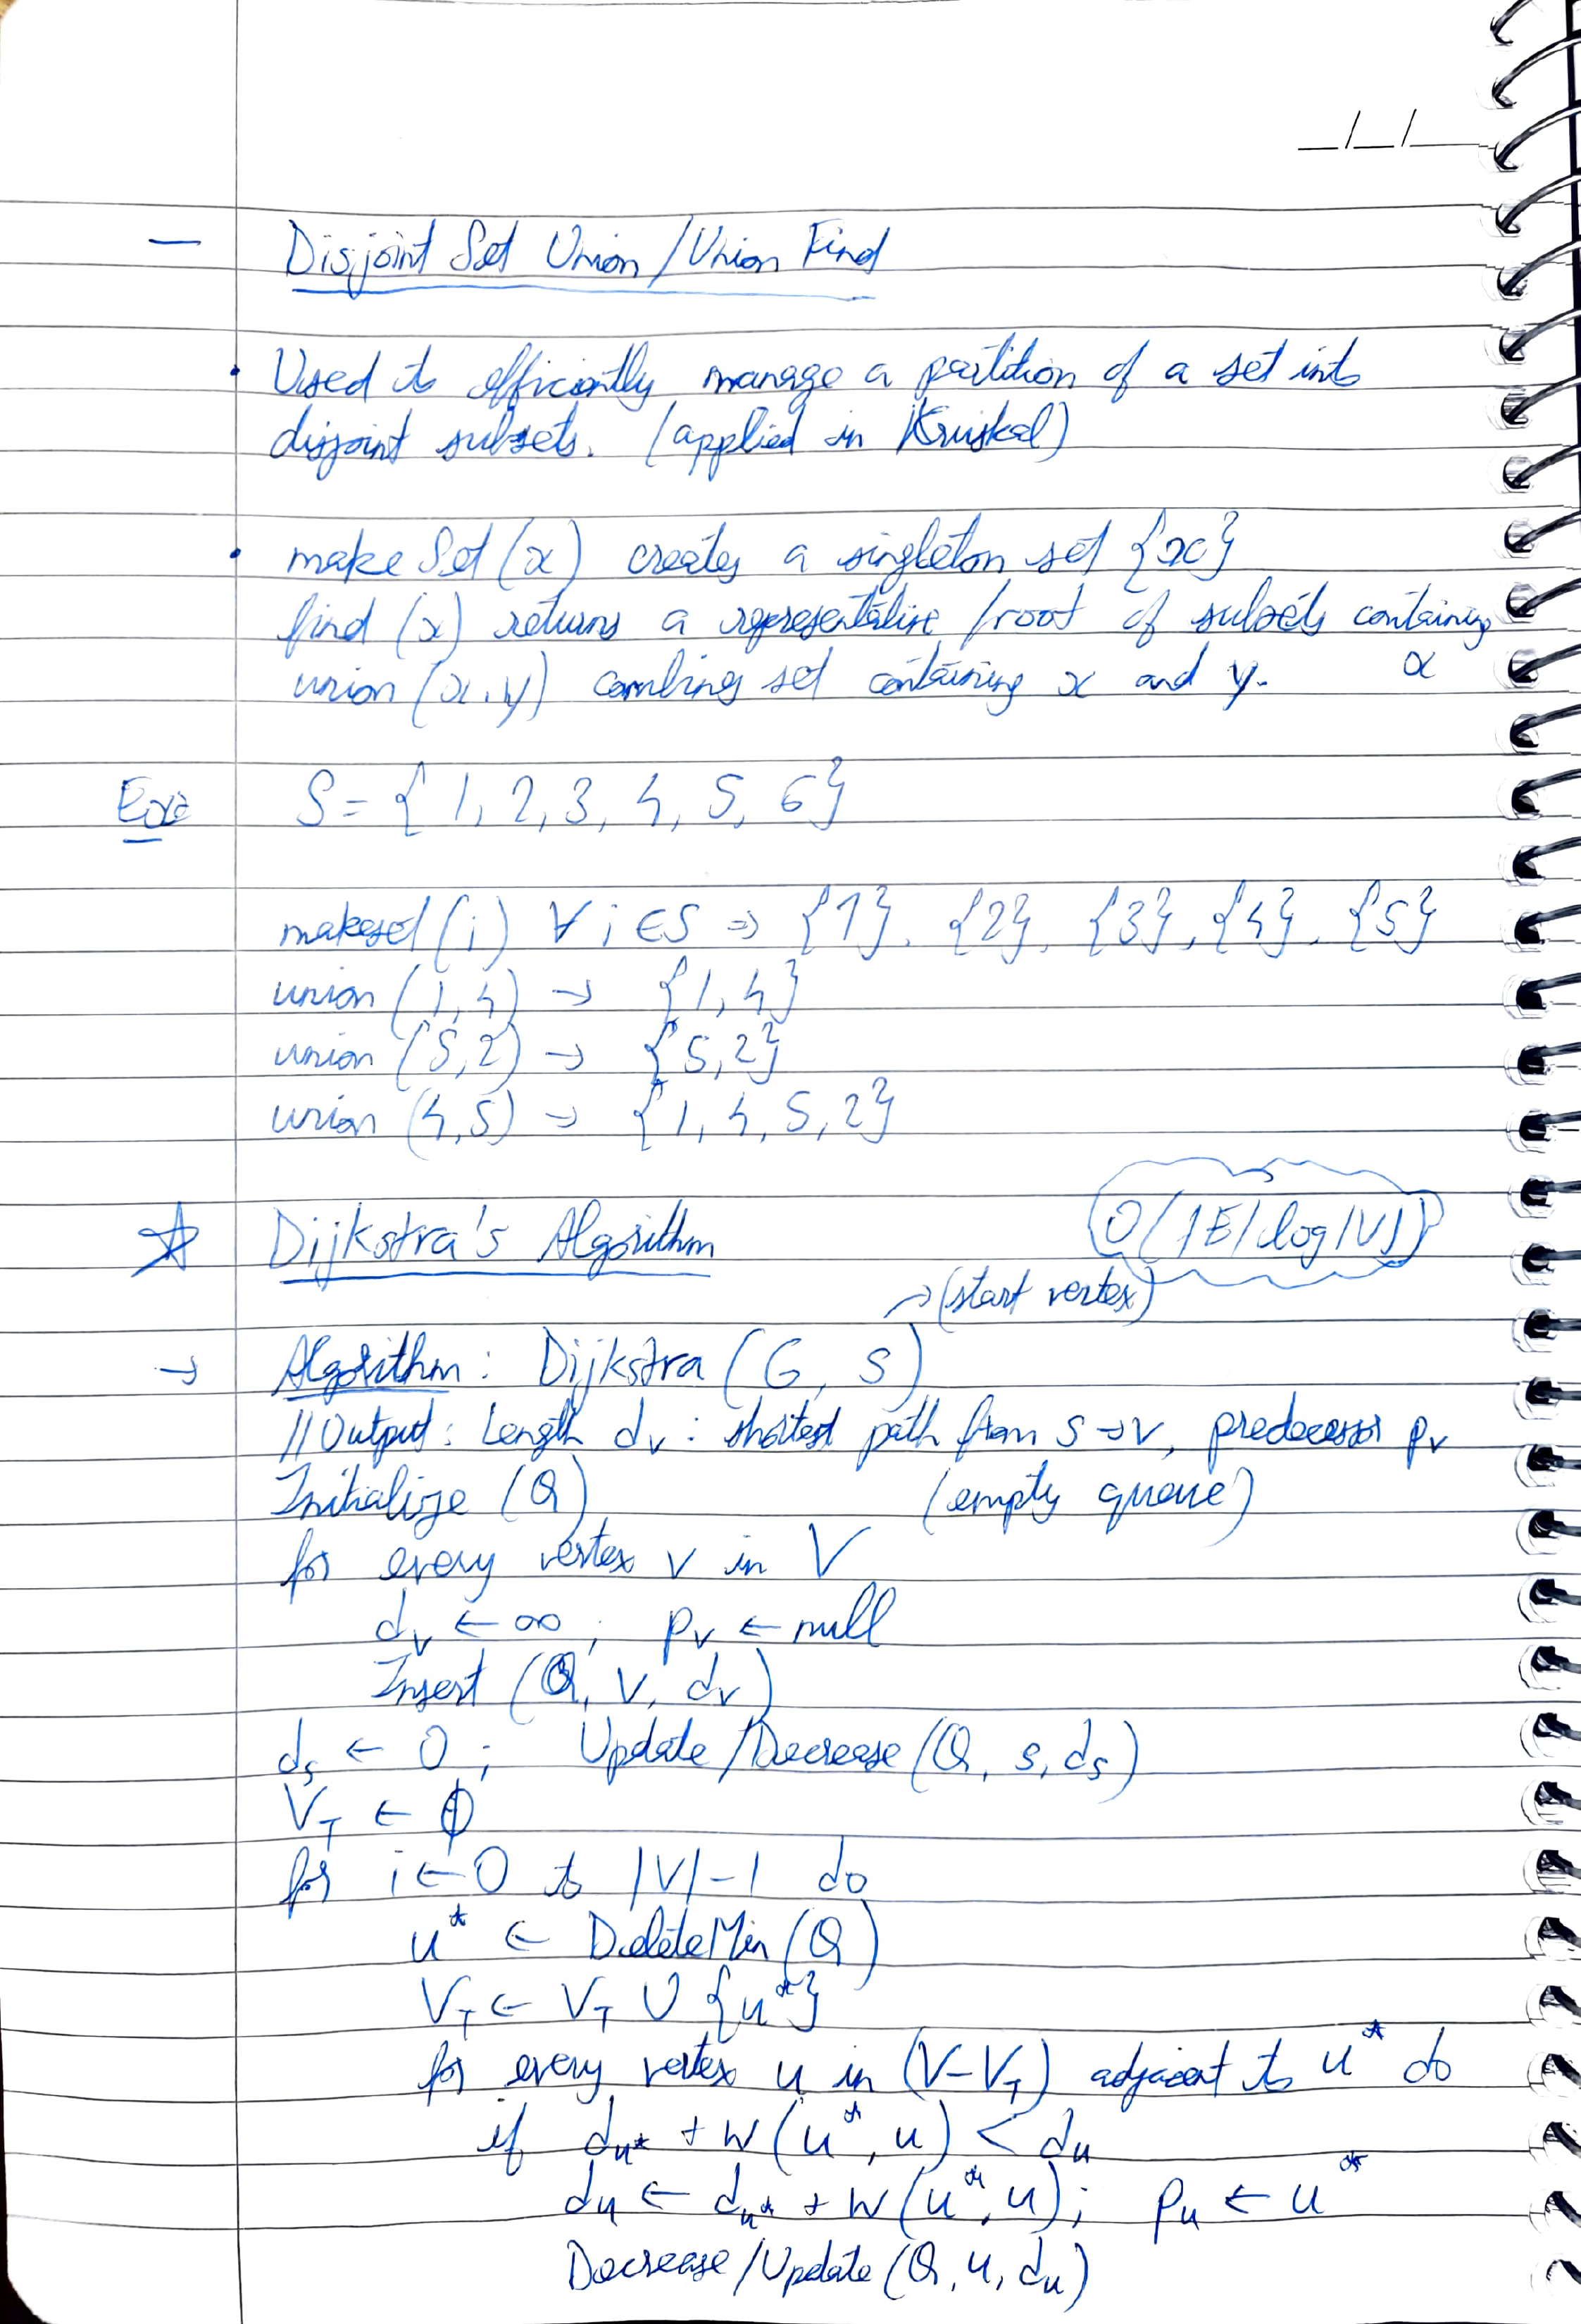 _/_/_
— Disjoint Set Union / Union Find
• Used to efficiently manage a partition of a set into
disjoint subsets. (applied in Kruskal)
• makeSet(x) creates a singleton set {x}
find (x) returns a representative /root of subsets containing
x
union (x, y) combines set containing x and y.
Ex: S = { 1, 2, 3, 4, 5, 6}
makeset(i) ∀ i ∈ S ⇒ {1}, {2}, {3}, {4}, {5}
union (1, 4) → {1, 4}
union (5, 2) → {5, 2}
union (4, 5) → {1, 4, 5, 2}
☆ Dijkstra's Algorithm O(|E| log|V|)
→ (start vertex)
→ Algorithm: Dijkstra (G, S)
// Output: Length dᵥ : shortest path from s → v, predecessor pᵥ
Initialize (Q) (empty queue)
for every vertex v in V
dᵥ ← ∞ ; pᵥ ← null
Insert (Q, V, dᵥ)
dₛ ← 0 ; Update/Decrease (Q, s, dₛ)
V_T ← ϕ
for i ← 0 to |V| - 1 do
u* ← DeleteMin (Q)
V_T ← V_T ∪ {u*}
for every vertex u in (V - V_T) adjacent to u* do
if d_u* + w(u*, u) < d_u
d_u ← d_u* + w(u*, u); p_u ← u*
Decrease/Update (Q, u, d_u)